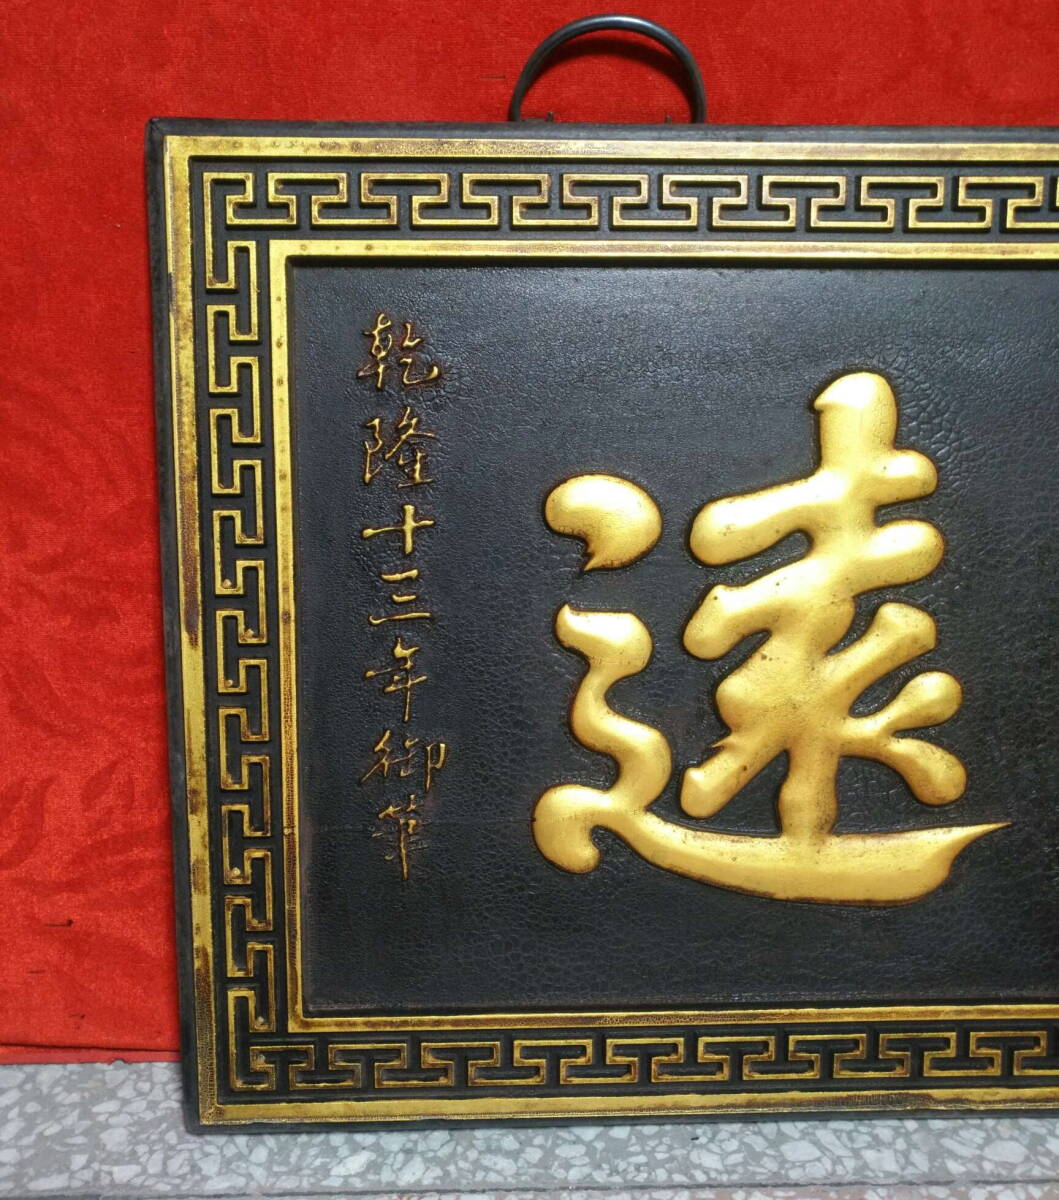 遠
乾隆十三年御筆